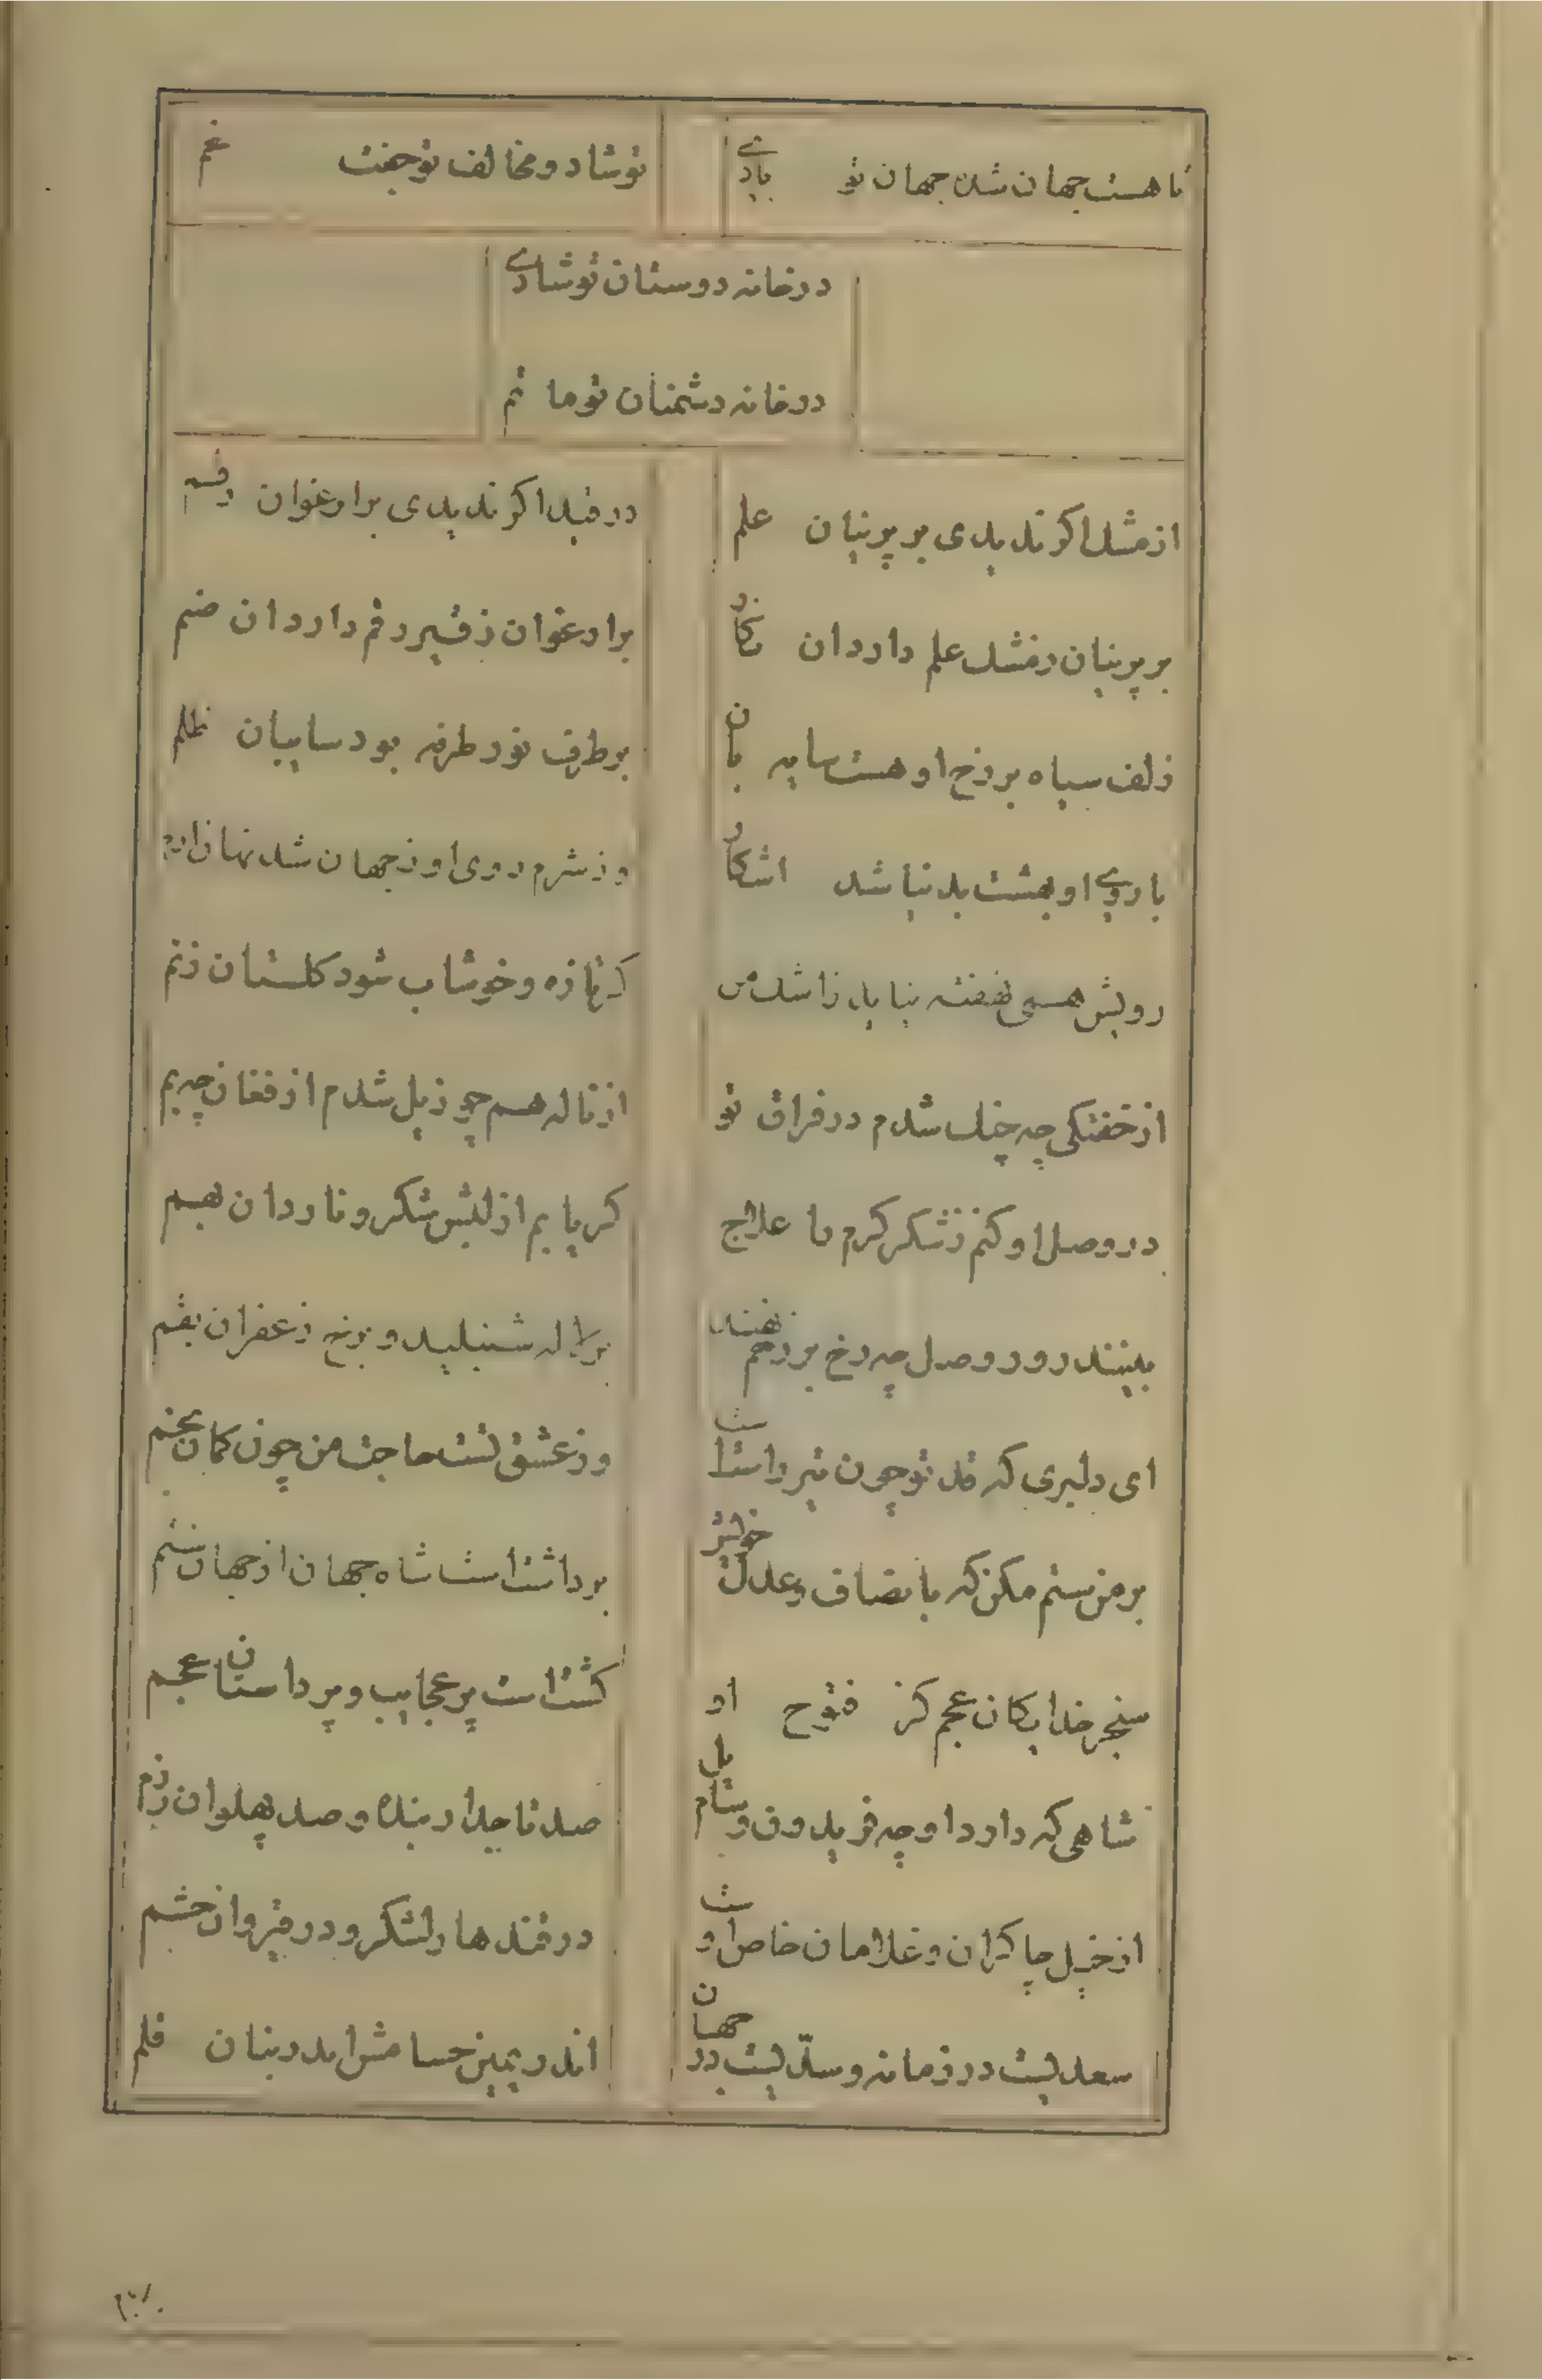 تا هست جهان شه جهان تو بادی
تو شاد و مخالف تو جفت غم
در خانه دوستان تو شادی
در خانه دشمنان تو ماتم
از مشک اگر ندیدی بر پرنیان علم
در قید اگر ندیدی بر ارغوان رقم
بر پرنیان ز مشک علم دارد ان نگار
بر ارغوان ز قیر رقم دارد ان صنم
زلف سیاه بر رخ او هست سایه بان
بر طرف نور طرفه بود سایبان ظلم
با روی او بهشت بدنیا شد اشکار
وز شرم روی او ز جهان شد نهان ارم
رویش همی نهفته نیاید ز اشک من
که تازه و خوشاب شود گلستان ز نم
از خفتگی چه چنگ شدم در فراق تو
از ناله هم چو زیل شدم از فغان چه بم
در وصل او کنم ز شکر کرم ما علاج
کر یابم از لبش شکر و ناردان بهم
بینند روز وصل چه رخ بر رخم نهند
بر لاله شنبلید و برخ زعفران بقم
ای دلبری که قد تو چون تیر راستست
وز عشق تست حاجت من چون کمان بخم
بر من ستم مکن که بانصاف و عدل خویش
برداشت است شاه جهان از جهان ستم
سنجر خدایگان عجم کز فتوح او
گشت است پر عجایب و پر داستان عجم
شاهی که دارد او چه فریدون و سام یل
صد تاجدار بنده و صد پهلوان رزم
از خیل چاکران و غلامان خاص اوست
در قندهار لشکر و در قیروان حشم
سعدیست در زمانه و سدّیست در جهان
اندر یمین حسامش اندر بنان قلم